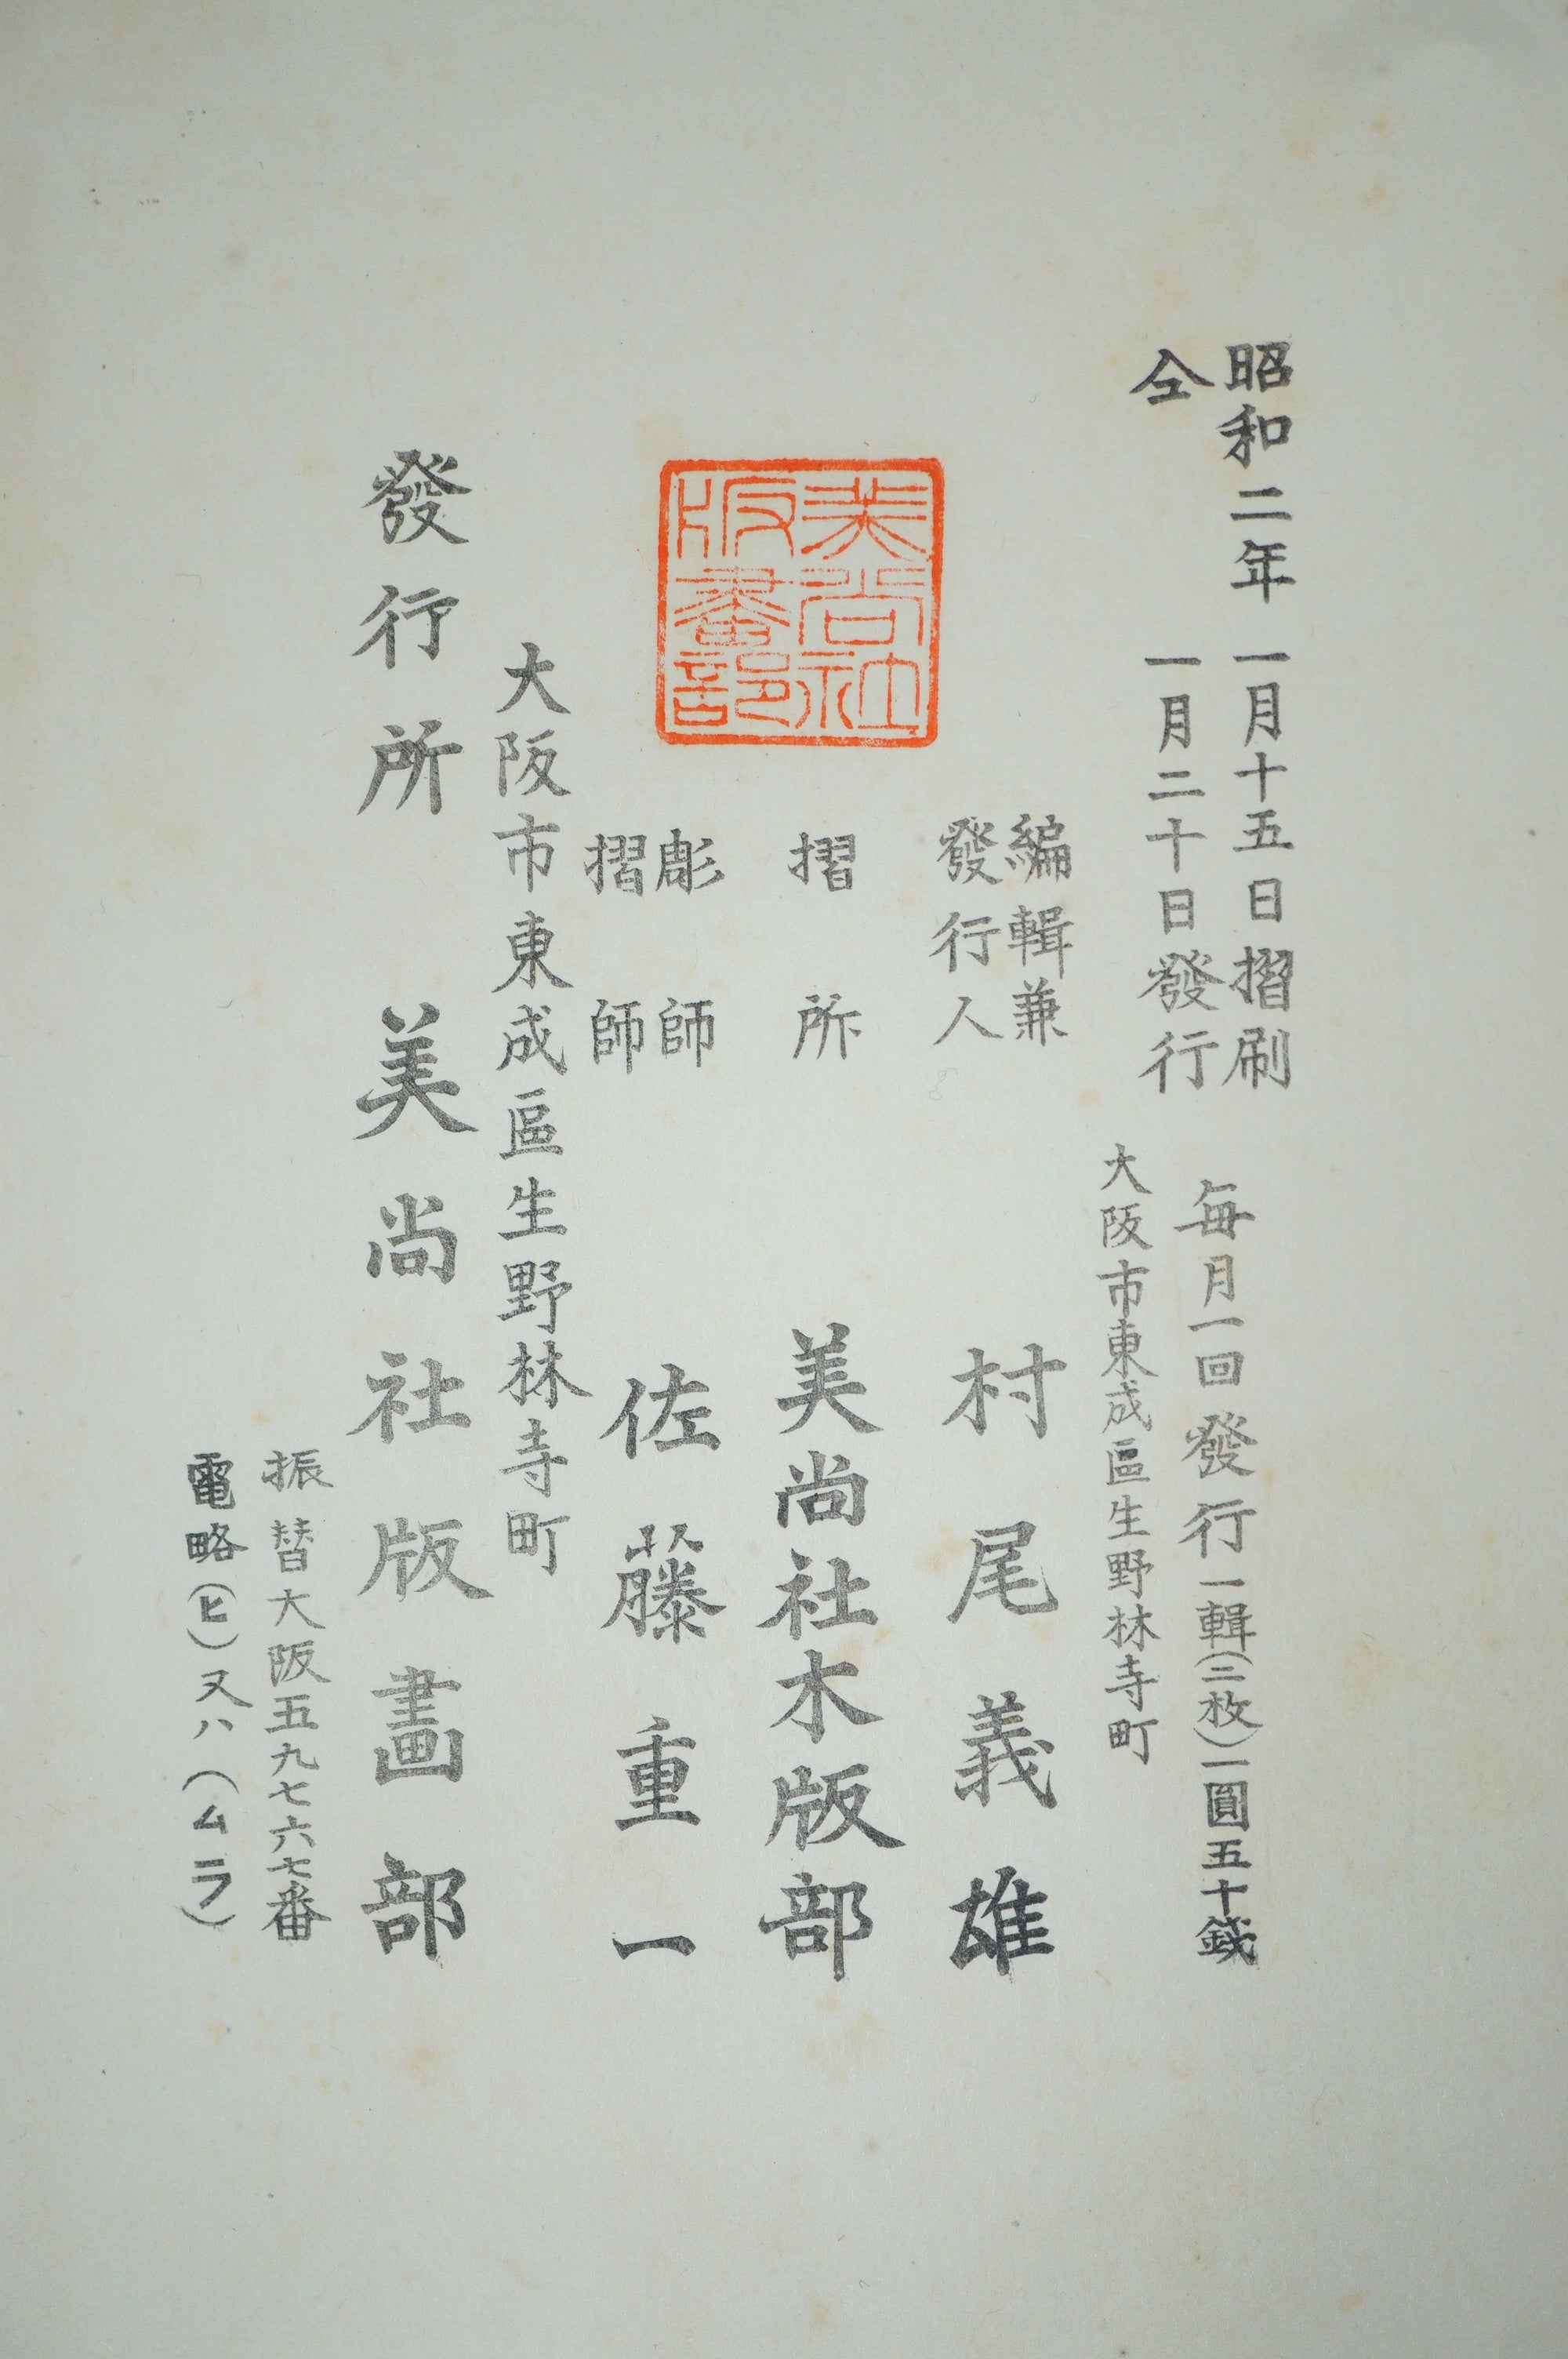 昭和二年一月十五日摺刷
仝一月二十日發行
每月一回發行一輯(二枚)一圓五十錢
大阪市東成區生野林寺町
編輯兼
發行人
村尾義雄
摺所
美尚社木版部
美尚社
版畫部
彫師
摺師
佐藤重一
大阪市東成區生野林寺町
發行所
美尚社版畫部
振替大阪五九七六七番
電略(ヒ)又ハ(ムラ)